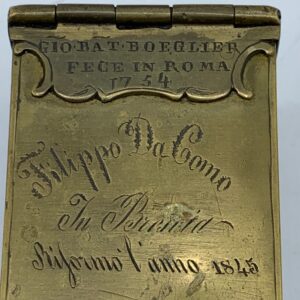 GIO·BAT·BOEGLIER
FECE IN ROMA
1754
Filippo Da Como
In Brescia
Riformò l'anno 1845